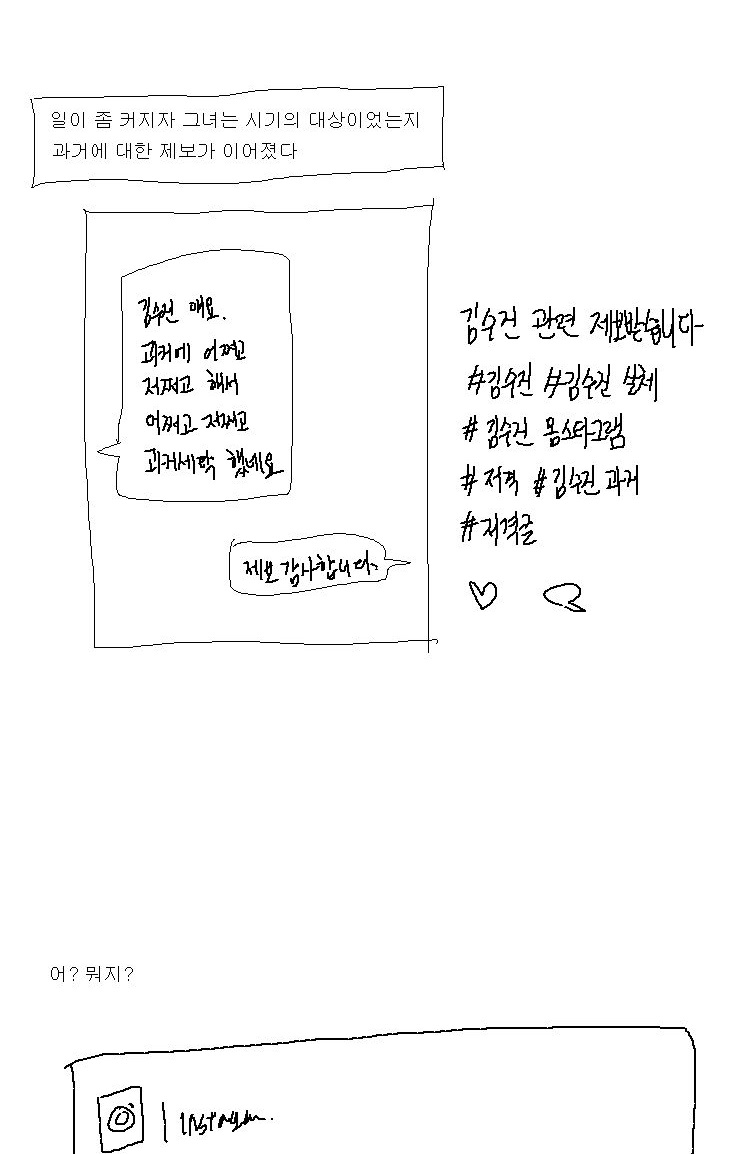 일이 좀 커지자 그녀는 시기의 대상이었는지
과거에 대한 제보가 이어졌다
김수진 얘요.
과거에 어쩌고
저쩌고 해서
어쩌고 저쩌고
과거세탁 했네요
제보 감사합니다.
김수진 관련 제보받습니다
#김수진 #김수진 실체
#김수진 몸스타그램
#저격 #김수진 과거
#저격글
어? 뭐지?
Instagram.